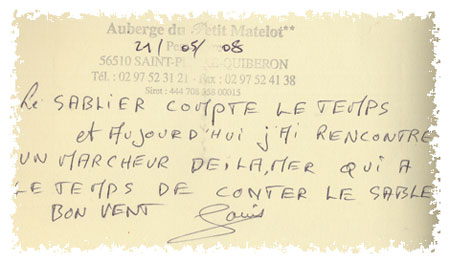 Auberge du Petit Matelot**
21/05/08
56510 SAINT-PIERRE-QUIBERON
Tél. : 02 97 52 31 21 - Fax : 02 97 52 41 38
Siret : 444 708 358 00015
Le SABLIER COMPTE LE TEMPS
et AUJOURD'HUI j'AI RENCONTRE
UN MARCHEUR DE LA MER QUI A
LE TEMPS DE CONTER LE SABLE
BON VENT Louis